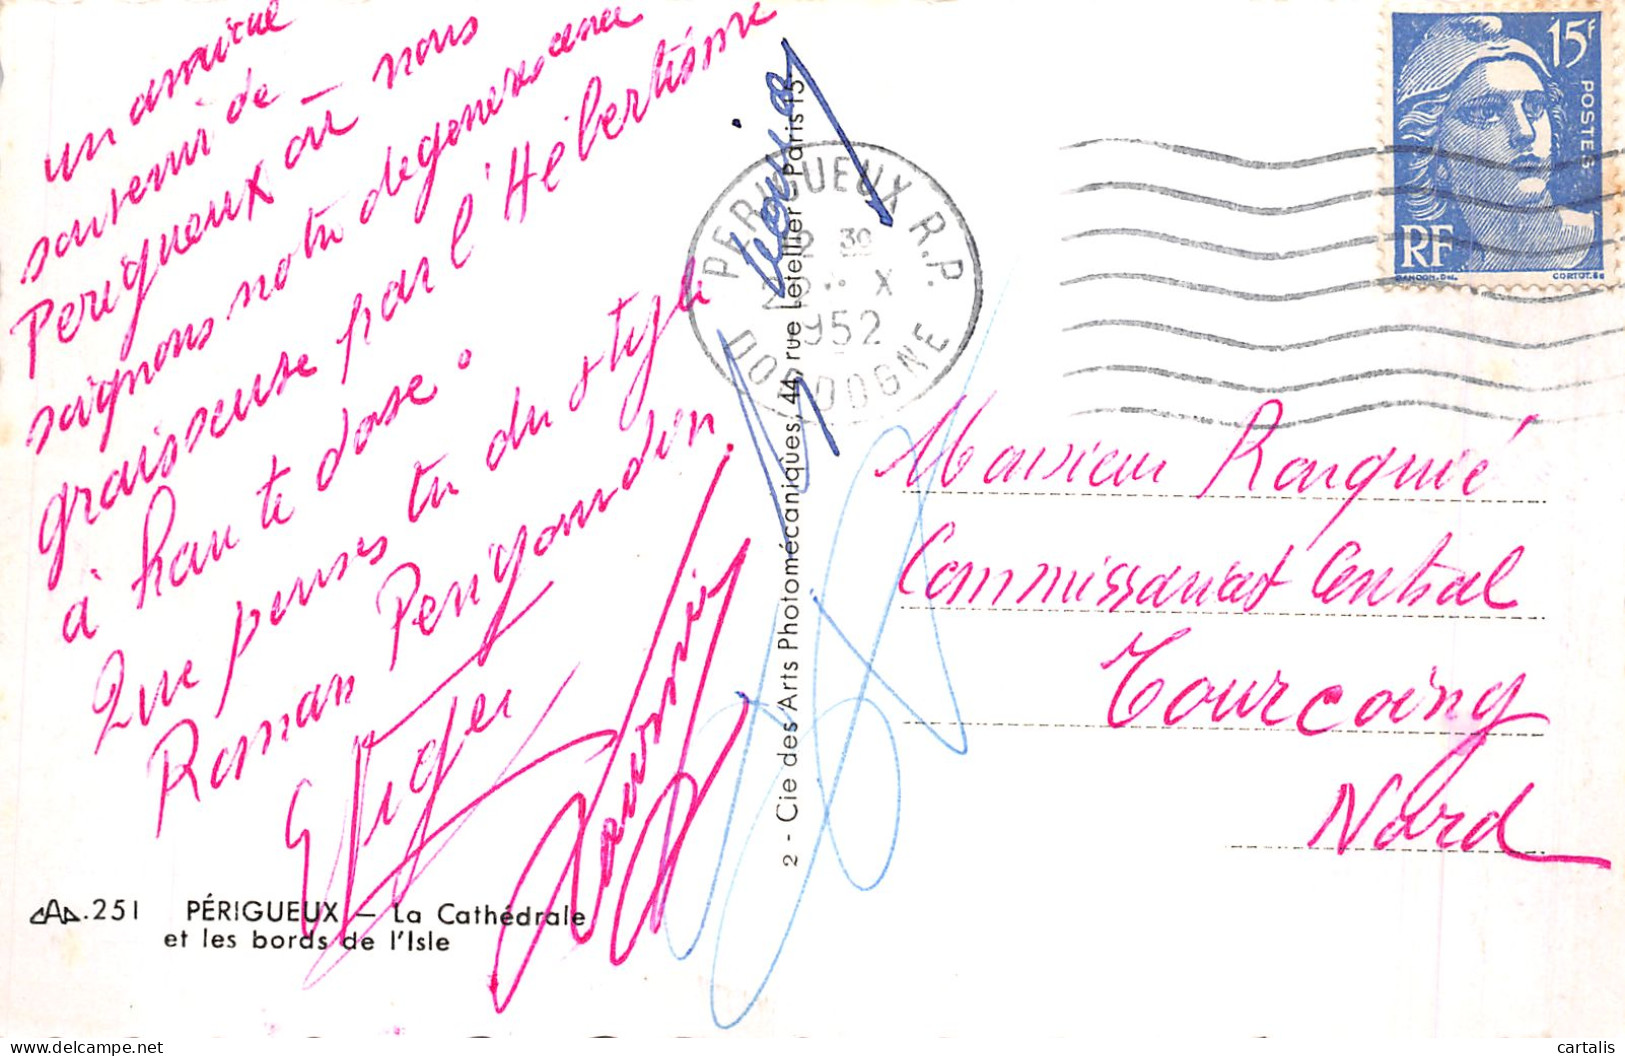 un amical
souvenir de
Perigueux où - nous
soignons notre degenerescence
graisseuse par l'Hébertisme
à haute dose.
Que penses tu du style
Roman Perigourdin
PERIGUEUX R.P.
30
X
1952
DORDOGNE
15F
POSTES
RF
GANDON.Del.
CORTOT.Sc
Monsieur
Commissariat Central
Tourcoing
Nord
2 - Cie des Arts Photomécaniques, 44, rue Letellier - Paris 15
CAP.251 PÉRIGUEUX — La Cathédrale
et les bords de l'Isle
cartalis